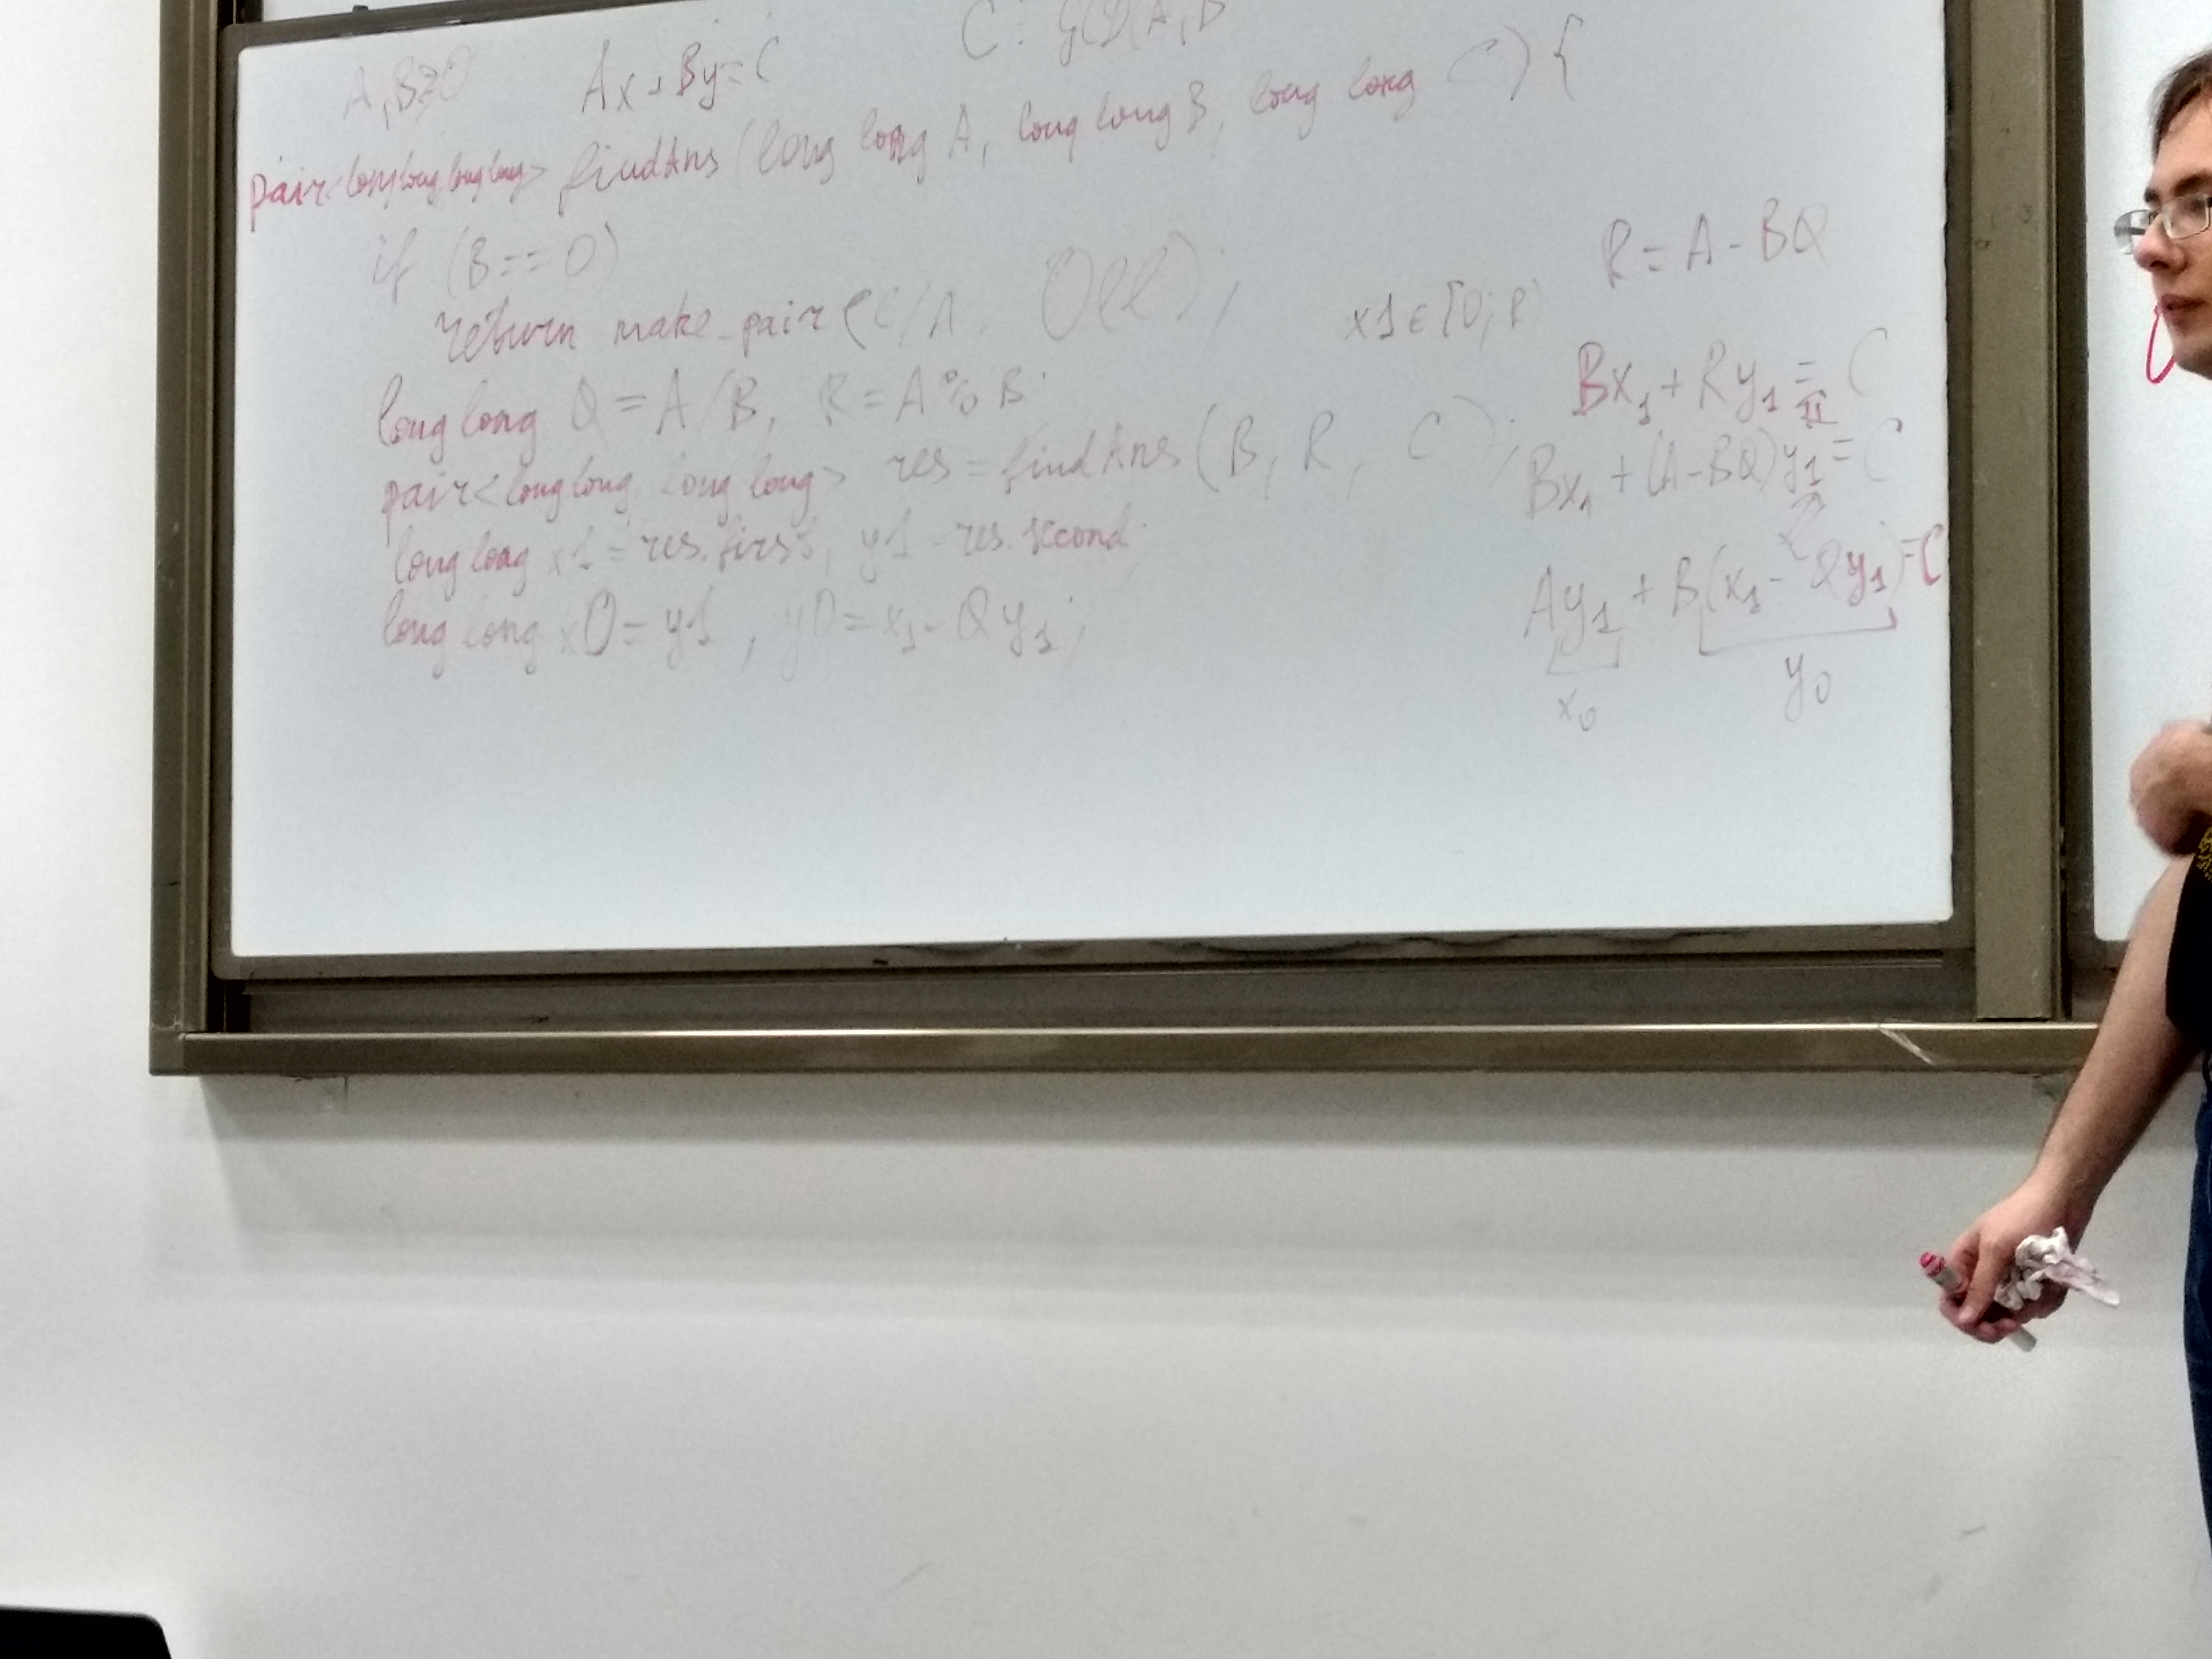 A, B≥0 Ax + By = C C ⋮ GCD(A, B
pair<long long, long long> findAns (long long A, long long B, long long C) {
if (B==0)
return make_pair(C/A, 0ll);
long long Q = A/B, R = A%B;
pair<long long, long long> res = findAns(B, R, C);
long long x1 = res.first, y1 = res.second;
long long x0 = y1, y0 = x₁ - Qy₁;
R = A - BQ
x1 ∈ [0; R)
Bx₁ + Ry₁ = C
Bx₁ + (A-BQ)y₁ = C
Ay₁ + B(x₁ - Qy₁) = C
x₀ y₀